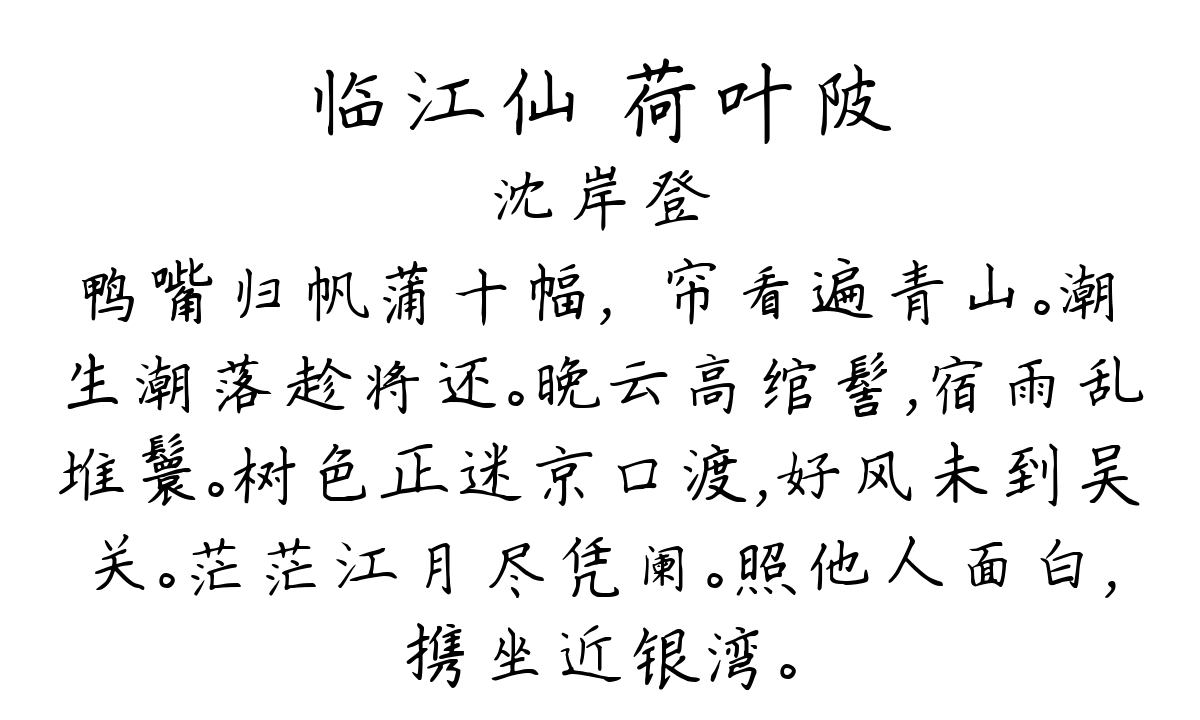 临江仙 荷叶陂
沈岸登
鸭嘴归帆蒲十幅，帘看遍青山。潮
生潮落趁将还。晚云高绾髻，宿雨乱
堆鬟。树色正迷京口渡，好风未到吴
关。茫茫江月尽凭阑。照他人面白，
携坐近银湾。